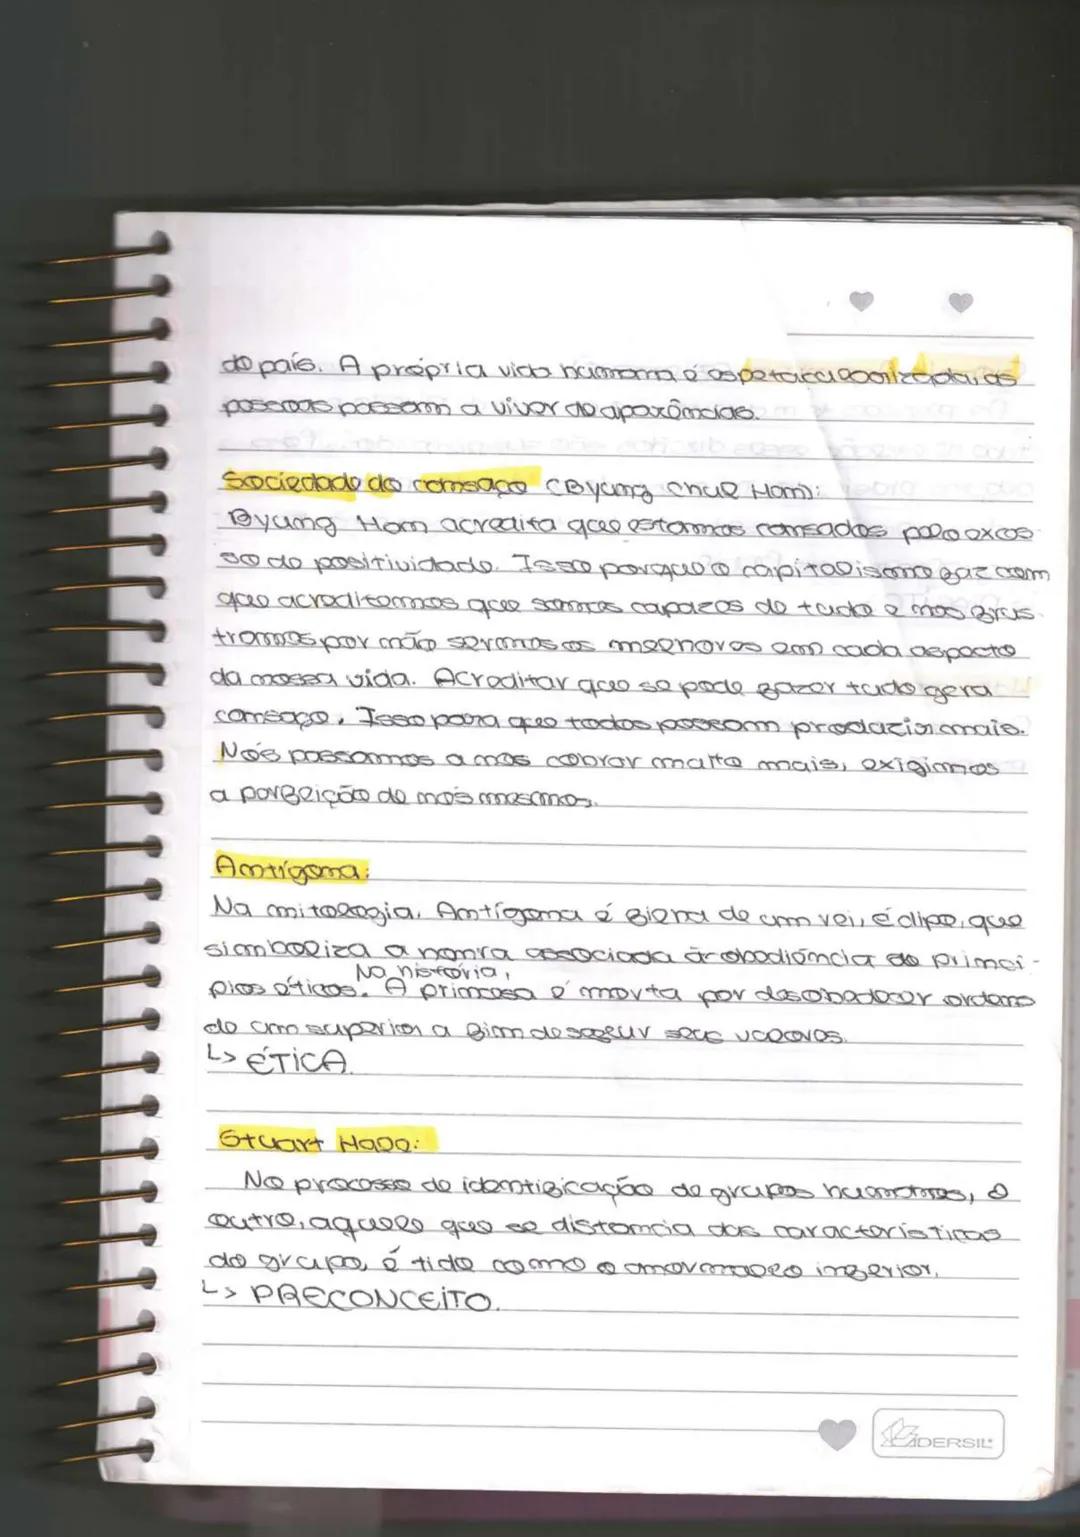 do país. A própria vida humana é espetacularizada, as
pessoas passam a viver de aparências.
Sociedade do cansaço (Byung Chul Han):
Byung Han acredita que estamos cansados pelo exces-
so de positividade. Isso porque o capitalismo faz com
que acreditemos que somos capazes de tudo e nos frus-
tramos por não sermos os melhores em cada aspecto
da nossa vida. Acreditar que se pode fazer tudo gera
cansaço. Isso para que todos possam produzir mais.
Nós passamos a nos cobrar muito mais, exigimos
a perfeição de nós mesmos.
Antígona:
Na mitologia, Antígona é filha de um rei, Édipo, que
simboliza a honra associada à obediência de princí-
pios éticos. Na história, A princesa é morta por desobedecer ordens
de um superior a fim de seguir seus valores.
↳ ÉTICA.
Stuart Hall:
No processo de identificação de grupos humanos, o
outro, aquele que se distancia das características
do grupo, é tido como o anormal e o inferior.
↳ PRECONCEITO.
CADERSIL